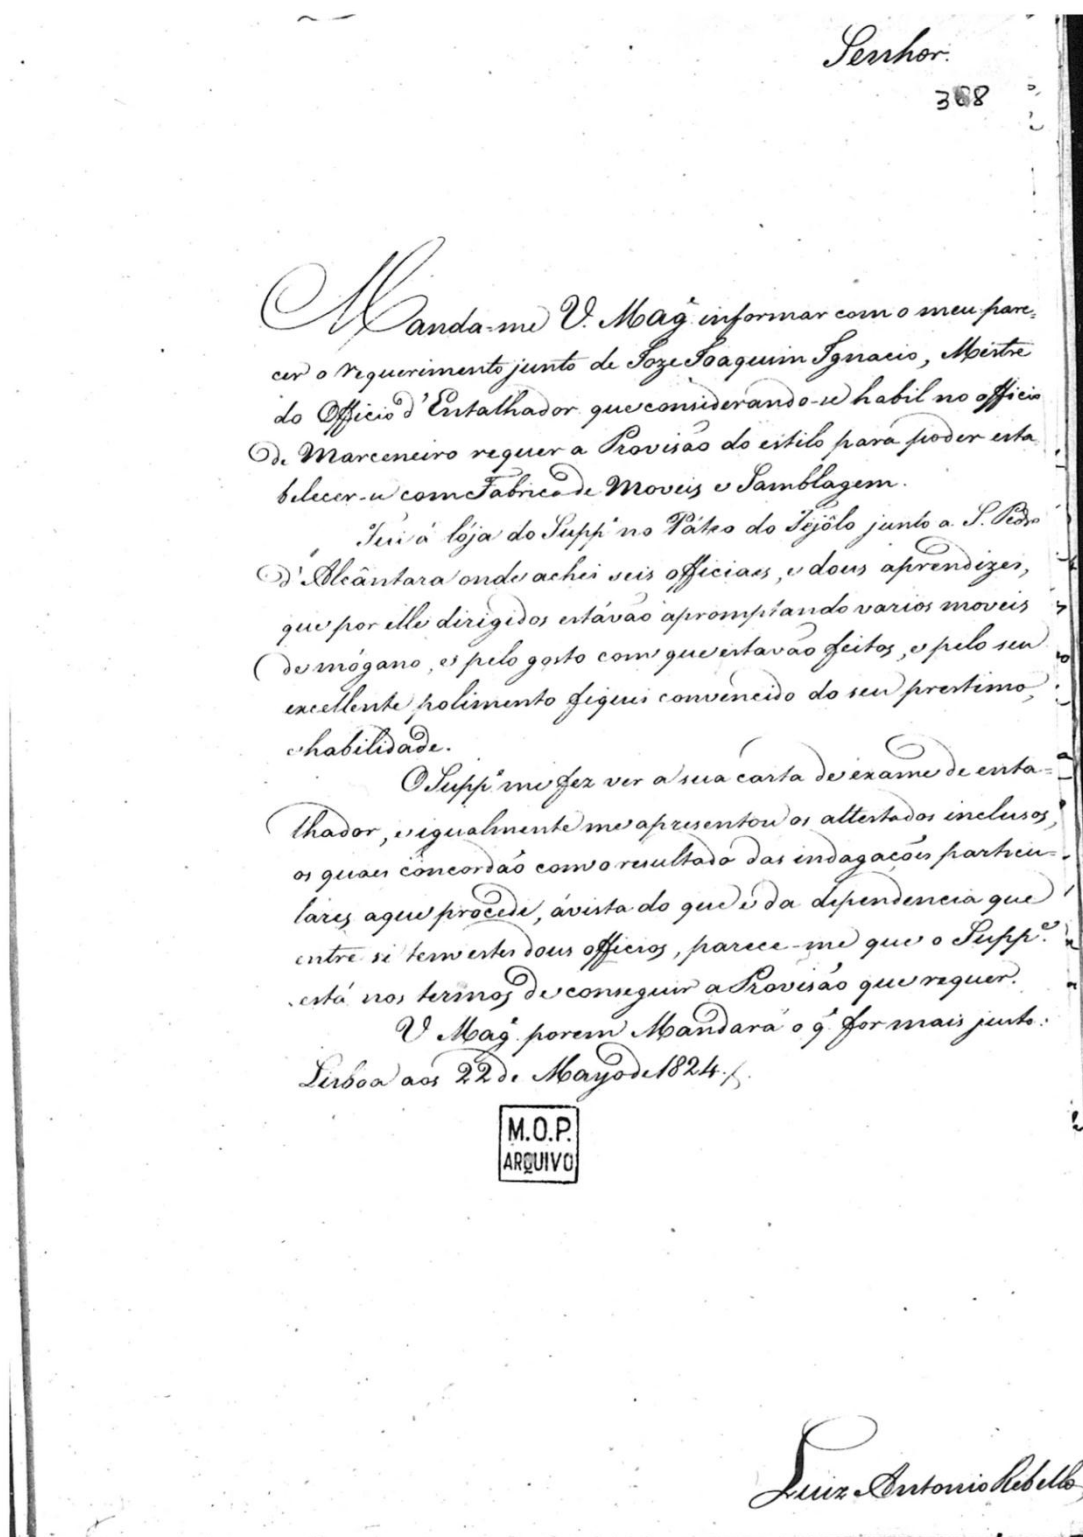 Senhor.
368
Manda-me V. Mag.e informar com o meu pare=
cer o requerimento junto de Joze Joaquim Ignacio, Mestre
do Officio d'Entalhador que considerando-se habil no officio
de Marceneiro requer a Provisão do estilo para poder esta
belecer-se com Fabrica de Moveis e Samblagem.
Fui á lója do Supp.e no Páteo do Tejôlo junto a S. Pedro
d'Alcântara onde achei seis officiaes, e dous aprendizes,
que por elle dirigidos estávão apromptando varios moveis
de mógano, e pelo gosto com que estavão feitos, e pelo seu
excellente polimento fiquei convencido do seu prestimo,
e habilidade.
O Supp.e me fez ver a sua carta de exame de enta=
lhador, e igualmente me apresentou os attestados inclusos,
os quaes concordão com o resultado das indagações particu=
lares a que procedi, á vista do que e da dependencia que
entre si tem estes dous officios, parece-me que o Supp.e
está nos termos de conseguir a Provisão que requer.
V Mag.e porem Mandará o q̃ for mais justo:
Lisboa aos 22 de Mayo de 1824.
M.O.P.
ARQUIVO
Luiz Antonio Rebello